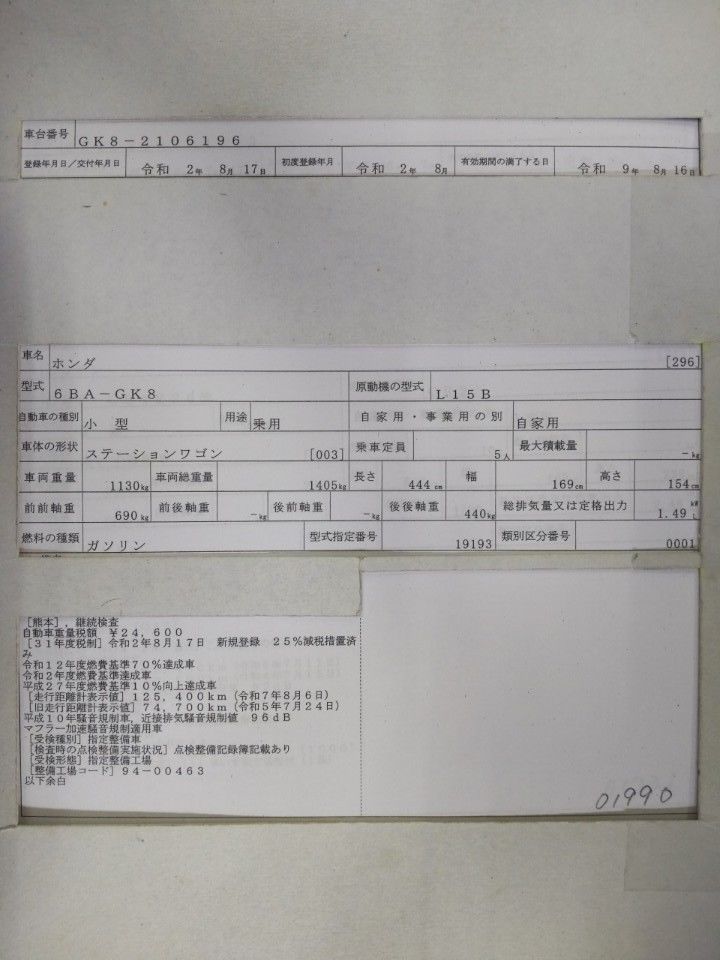 車台番号 GK8-2106196
登録年月日/交付年月日 令和 2年 8月 17日 初度登録年月 令和 2年 8月 有効期間の満了する日 令和 9年 8月 16日
車名 ホンダ [296]
型式 6BA-GK8 原動機の型式 L15B
自動車の種別 小 型 用途 乗用 自家用・事業用の別 自家用
車体の形状 ステーションワゴン [003] 乗車定員 5人 最大積載量 -kg
車両重量 1130kg 車両総重量 1405kg 長さ 444cm 幅 169cm 高さ 154cm
前前軸重 690kg 前後軸重 -kg 後前軸重 -kg 後後軸重 440kg 総排気量又は定格出力 1.49 kW L
燃料の種類 ガソリン 型式指定番号 19193 類別区分番号 0001
[熊本],継続検査
自動車重量税額 ¥24,600
[31年度税制]令和2年8月17日 新規登録 25%減税措置済
み
令和12年度燃費基準70%達成車
令和2年度燃費基準達成車
平成27年度燃費基準10%向上達成車
[走行距離計表示値]125,400km(令和7年8月6日)
[旧走行距離計表示値]74,700km(令和5年7月24日)
平成10年騒音規制車,近接排気騒音規制値 96dB
マフラー加速騒音規制適用車
[受検種別]指定整備車
[検査時の点検整備実施状況]点検整備記録簿記載あり
[受検形態]指定整備工場
[整備工場コード]94-00463
以下余白
01990